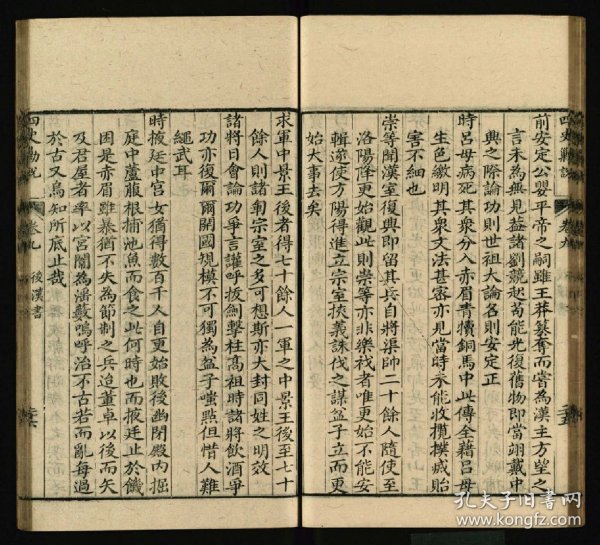 四史勦說
卷九
前安定公嬰平帝之嗣雖王莽篡奪而嘗為漢主方望之
言未為無見益諸劉競起苟能光復舊物即當翊戴中
興之際論功則世祖大論名則安定正
時呂母病死其衆分入赤眉青犢銅馬中此傳全藉呂母
生色繳明其衆文法甚密亦見當時不能收攬撲滅貽
害不細也
崇等聞漢室復興即留其兵自將渠帥二十餘人隨使至
洛陽降更始觀此則崇等亦非樂禍者唯更始不能安
輯遂使方陽得進立宗室挾義誅伐之謀盆子立而更
始大事去矣
求軍中景王後者得七十餘人一軍之中景王後至七十
餘人則諸劉宗室之多可想斯亦大封同姓之明效
諸將日會論功爭言讙呼拔劍擊柱高祖時諸將飲酒爭
功亦復爾爾開國規模不可獨為盆子嗤點但惜人難
繩武耳
時掖廷中宮女猶得數百千人自更始敗後幽閉殿內掘
庭中蘆菔根捕池魚而食之此何時也而掖廷止於饑
因是赤眉雖暴猶不失為節制之兵追董卓以後而矣
及君屋者率以宮闈為潘藪嗚呼治不古若而亂每過
於古又烏知所底止哉
四史勦說
卷九
後漢書
孔夫子旧书网
www.kongfz.com